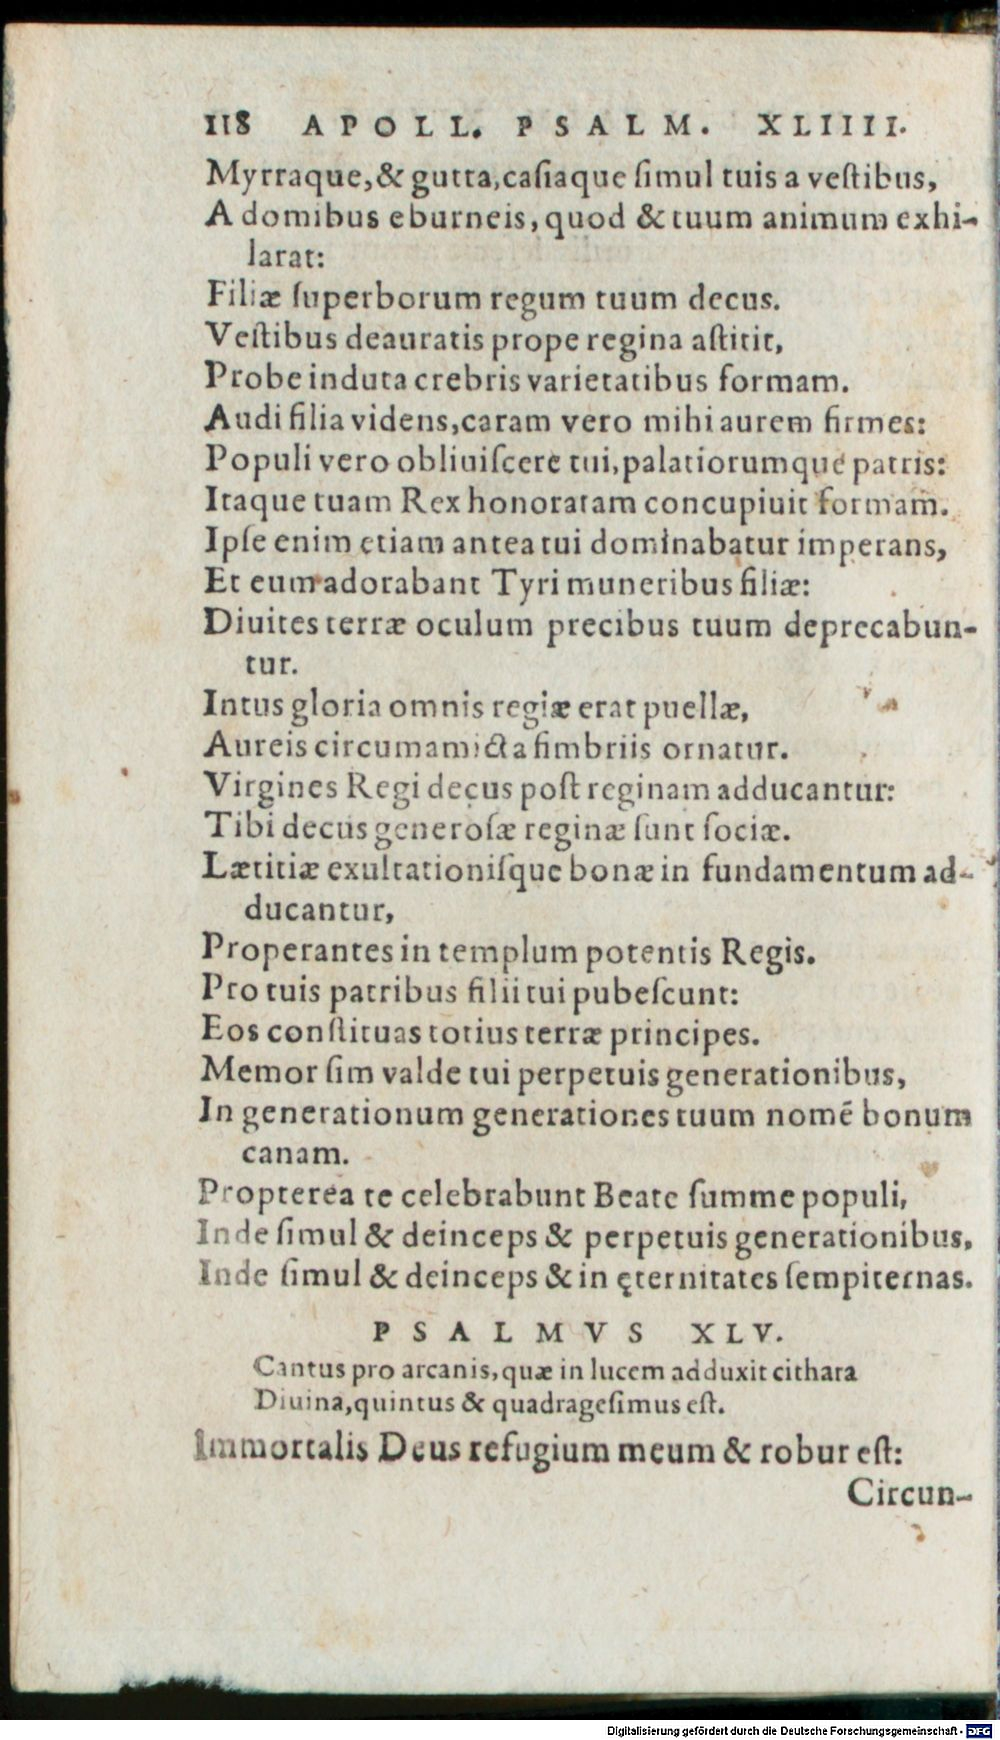 118 APOLL. PSALM. XLIIII.
Myrraque,& gutta,caſiaque ſimul tuis a veſtibus,
A domibus eburneis, quod & tuum animum exhi-
larat:
Filiæ ſuperborum regum tuum decus.
Veſtibus deauratis prope regina aſtitit,
Probe induta crebris varietatibus formam.
Audi filia videns,caram vero mihi aurem firmes:
Populi vero obliuiſcere tui,palatiorumque patris:
Itaque tuam Rex honoratam concupiuit formam.
Ipſe enim etiam antea tui dominabatur imperans,
Et eum adorabant Tyri muneribus filiæ:
Diuites terræ oculum precibus tuum deprecabun-
tur.
Intus gloria omnis regiæ erat puellæ,
Aureis circumamicta fimbriis ornatur.
Virgines Regi decus poſt reginam adducantur:
Tibi decus generoſæ reginæ ſunt ſociæ.
Lætitiæ exultationiſque bonæ in fundamentum ad-
ducantur,
Properantes in templum potentis Regis.
Pro tuis patribus filii tui pubeſcunt:
Eos conſtituas totius terræ principes.
Memor ſim valde tui perpetuis generationibus,
In generationum generationes tuum nomē bonum
canam.
Propterea te celebrabunt Beate ſumme populi,
Inde ſimul & deinceps & perpetuis generationibus,
Inde ſimul & deinceps & in ęternitates ſempiternas.
PSALMVS XLV.
Cantus pro arcanis,quæ in lucem adduxit cithara
Diuina,quintus & quadrageſimus eſt.
Immortalis Deus refugium meum & robur eſt:
Circun-
Digitalisierung gefördert durch die Deutsche Forschungsgemeinschaft - DFG